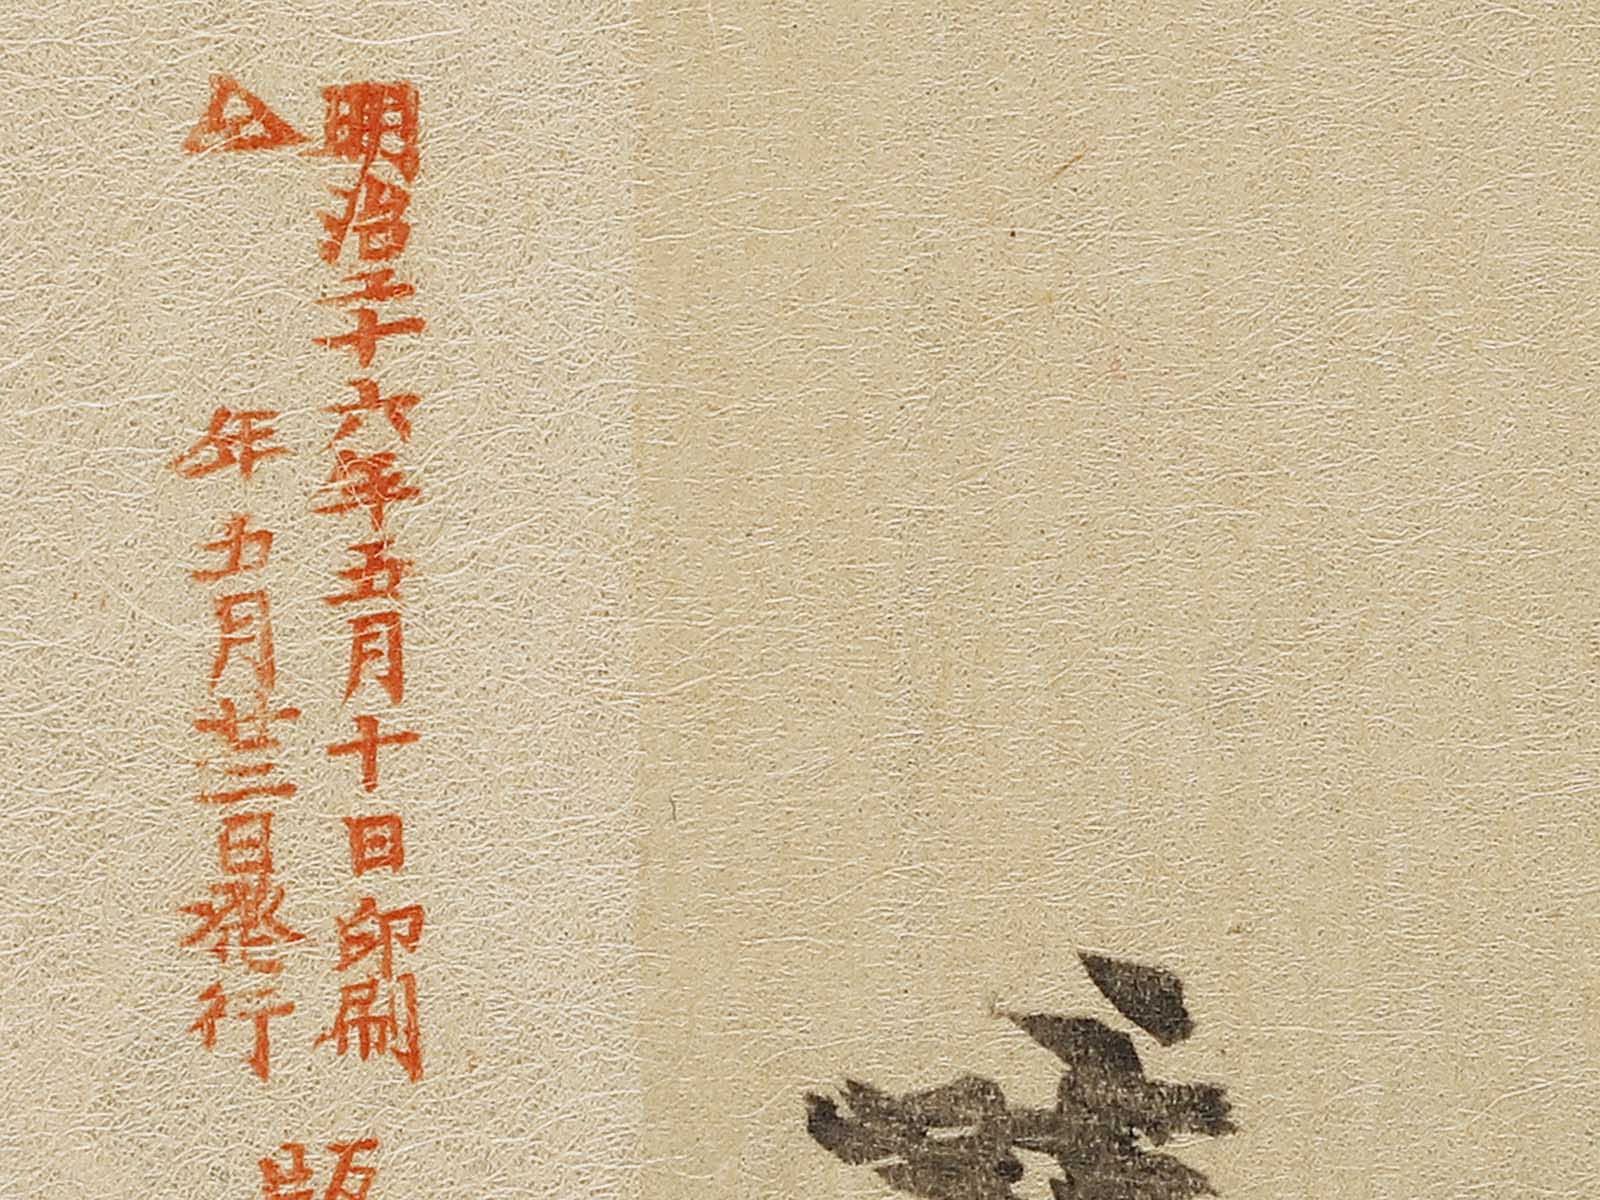 明治二十六年五月十日印刷
仝年五月廿三日發行
版